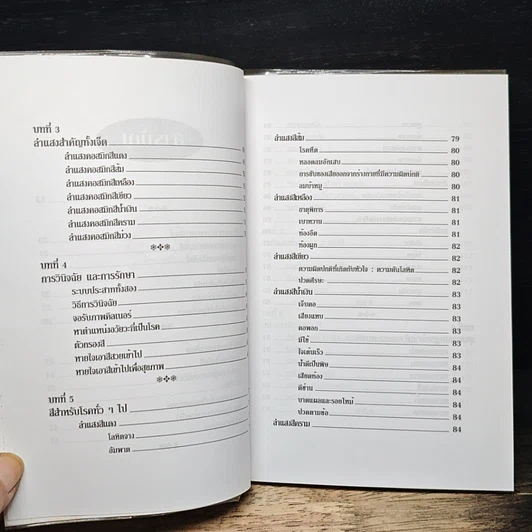 บทที่ 3
ลำแสงสำคัญทั้งเจ็ด
ลำแสงคอสมิกสีแดง
ลำแสงคอสมิกสีส้ม
ลำแสงคอสมิกสีเหลือง
ลำแสงคอสมิกสีเขียว
ลำแสงคอสมิกสีน้ำเงิน
ลำแสงคอสมิกสีคราม
ลำแสงคอสมิกสีม่วง
บทที่ 4
การวินิจฉัย และการรักษา
ระบบประสาททั้งสอง
วิธีการวินิจฉัย
จอรับภาพคิลเนอร์
หาตำแหน่งอวัยวะที่เป็นโรค
ตัวกรองสี
หายใจเอาสีสวยเข้าไป
หายใจเอาสีเข้าไปเพื่อสุขภาพ
บทที่ 5
สีสำหรับโรคทั่ว ๆ ไป
ลำแสงสีแดง
โลหิตจาง
อัมพาต
ลำแสงสีส้ม 79
โรคหืด 80
หลอดลมอักเสบ 80
การขับของเสียออกจากร่างกายที่มีความผิดปกติ 80
ลมบ้าหมู 81
ลำแสงสีเหลือง 81
ธาตุพิการ 81
เบาหวาน 81
ท้องอืด 81
ท้องผูก 82
ลำแสงสีเขียว 82
ความผิดปกติที่เกิดกับหัวใจ : ความดันโลหิต 82
ปวดศีรษะ 82
ลำแสงสีน้ำเงิน 83
เจ็บคอ 83
เสียงแหบ 83
คอพอก 83
มีไข้ 83
ใจเต้นเร็ว 83
น้ำดีเป็นพิษ 83
เสียดท้อง 84
ดีซ่าน 84
บาดแผลและรอยไหม้ 84
ปวดตามข้อ 84
ลำแสงสีคราม 84